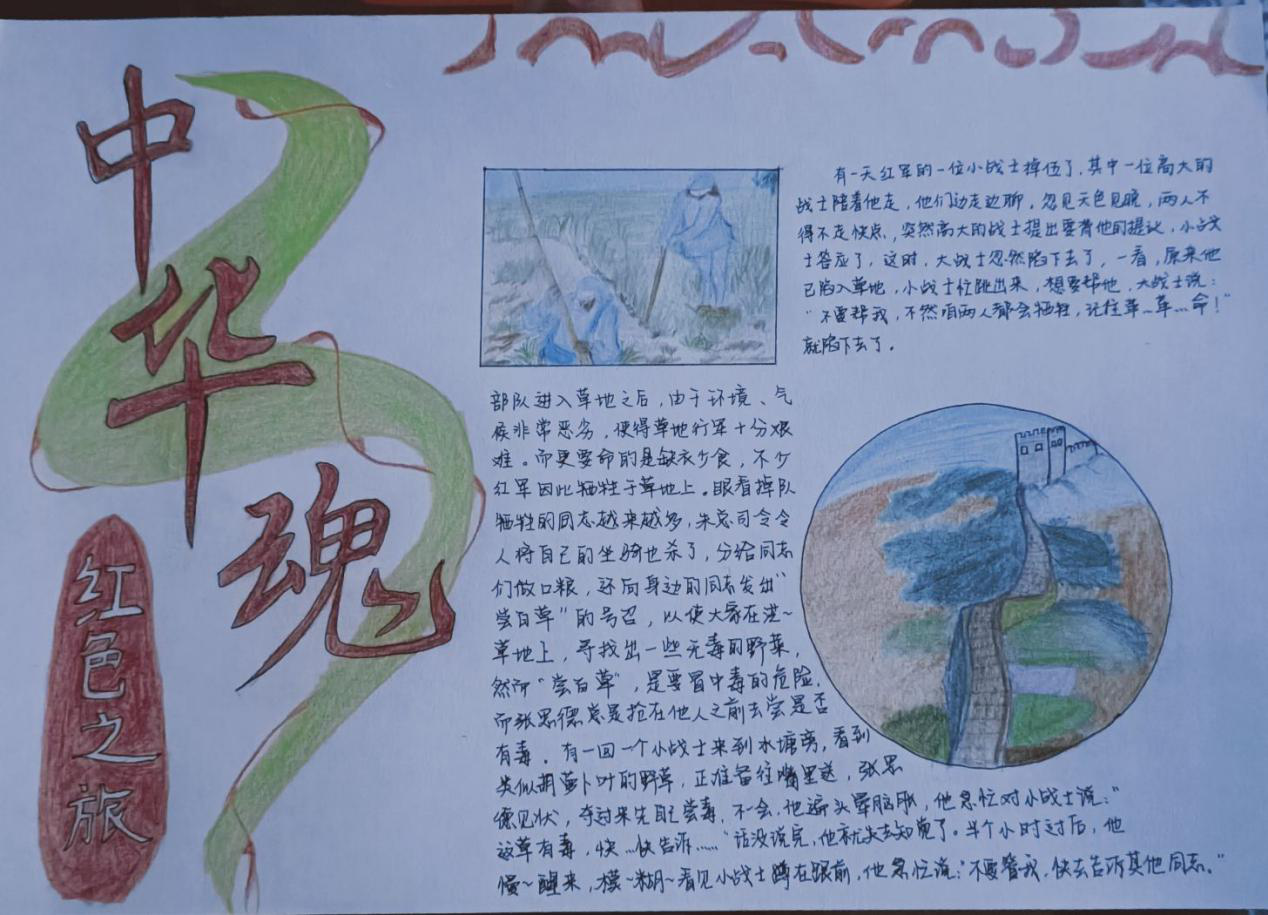 中华魂
红色之旅
有一天红军的一位小战士掉伍了，其中一位高大的
战士陪着他走，他们边走边聊，忽见天色见晚，两人不
得不走快点，突然高大的战士提出要背他的提议，小战
士答应了，这时，大战士忽然陷下去了，一看，原来他
已陷入草地，小战士忙跳出来，想要帮他，大战士说：
“不要帮我，不然咱两人都会牺牲，记住革…革…命！”
就陷下去了。
部队进入草地之后，由于环境、气
候非常恶劣，使得草地行军十分艰
难。而更要命的是缺衣少食，不少
红军因此牺牲于草地上。眼看掉队
牺牲的同志越来越多，朱总司令令
人将自己的坐骑也杀了，分给同志
们做口粮，还向身边的同志发出“
尝百草”的号召，以使大家在茫~
草地上，寻找出一些无毒的野菜，
然而“尝百草”，是要冒中毒的危险，
而张思德总是抢在他人之前去尝是否
有毒。有一回一个小战士来到水塘旁，看到
类似胡萝卜叶的野草，正准备往嘴里送，张思
德见状，夺过来先自己尝毒，不一会，他遍头晕脑胀，他急忙对小战士说：“
这草有毒，快…快告诉……”话没说完，他就失去知觉了。半个小时过后，他
慢~醒来，模~糊~看见小战士蹲在跟前，他急忙说：“不要管我，快去告诉其他同志。”